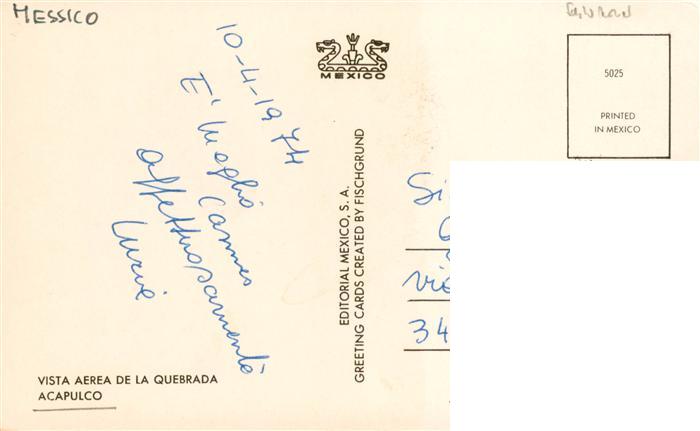 MESSICO
10-4-1974
E' meglio
Cannes
affettuosamente
MEXICO
EDITORIAL MEXICO, S. A.
GREETING CARDS CREATED BY FISCHGRUND
5025
PRINTED
IN MEXICO
Si
via
34
VISTA AEREA DE LA QUEBRADA
ACAPULCO